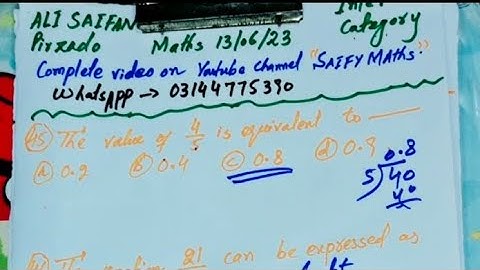 ALI SAIFAN
Pirzado Maths 13/06/23 Category
Complete video on Youtube Channel "SAIFY MATHS"
WhatsApp → 03144775390
45) The value of 4/5 is equivalent to ___
a) 0.2 b) 0.4 c) 0.8 d) 0.3
0.8
5)40
40
21 can be expressed as